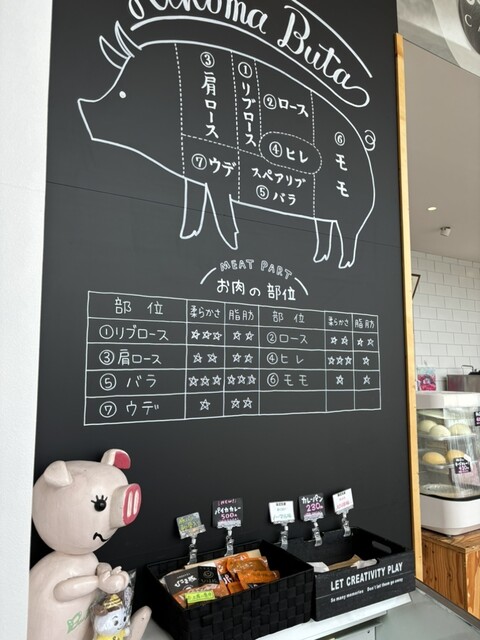 Buta
③肩ロース
①リブロース
②ロース
④ヒレ
⑥モモ
⑦ウデ
スペアリブ
⑤バラ
MEAT PART
お肉の部位
部位 柔らかさ 脂肪 部位 柔らかさ 脂肪
①リブロース ☆☆☆ ☆☆ ②ロース ☆☆ ☆☆
③肩ロース ☆☆ ☆☆ ④ヒレ ☆☆☆ ☆
⑤バラ ☆☆☆ ☆☆☆ ⑥モモ ☆ ☆
⑦ウデ ☆ ☆☆
パイカカレー
500
カレーパン
230
LET CREATIVITY PLAY
So many memories Don't let them go away